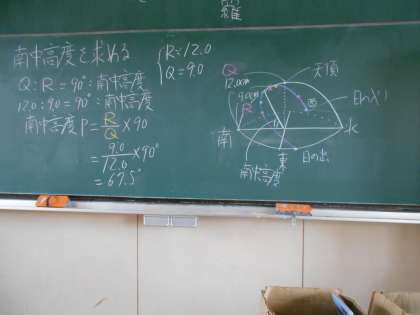 羅
南中高度を求める
R=12.0
Q=9.0
Q:R=90°:南中高度
12.0:9.0=90°:南中高度
南中高度P=R/Q×90
=9.0/12.0×90°
=67.5°
Q
12.0cm
9.0cm
R
天頂
西
日の入り
南
北
東
日の出
南中高度